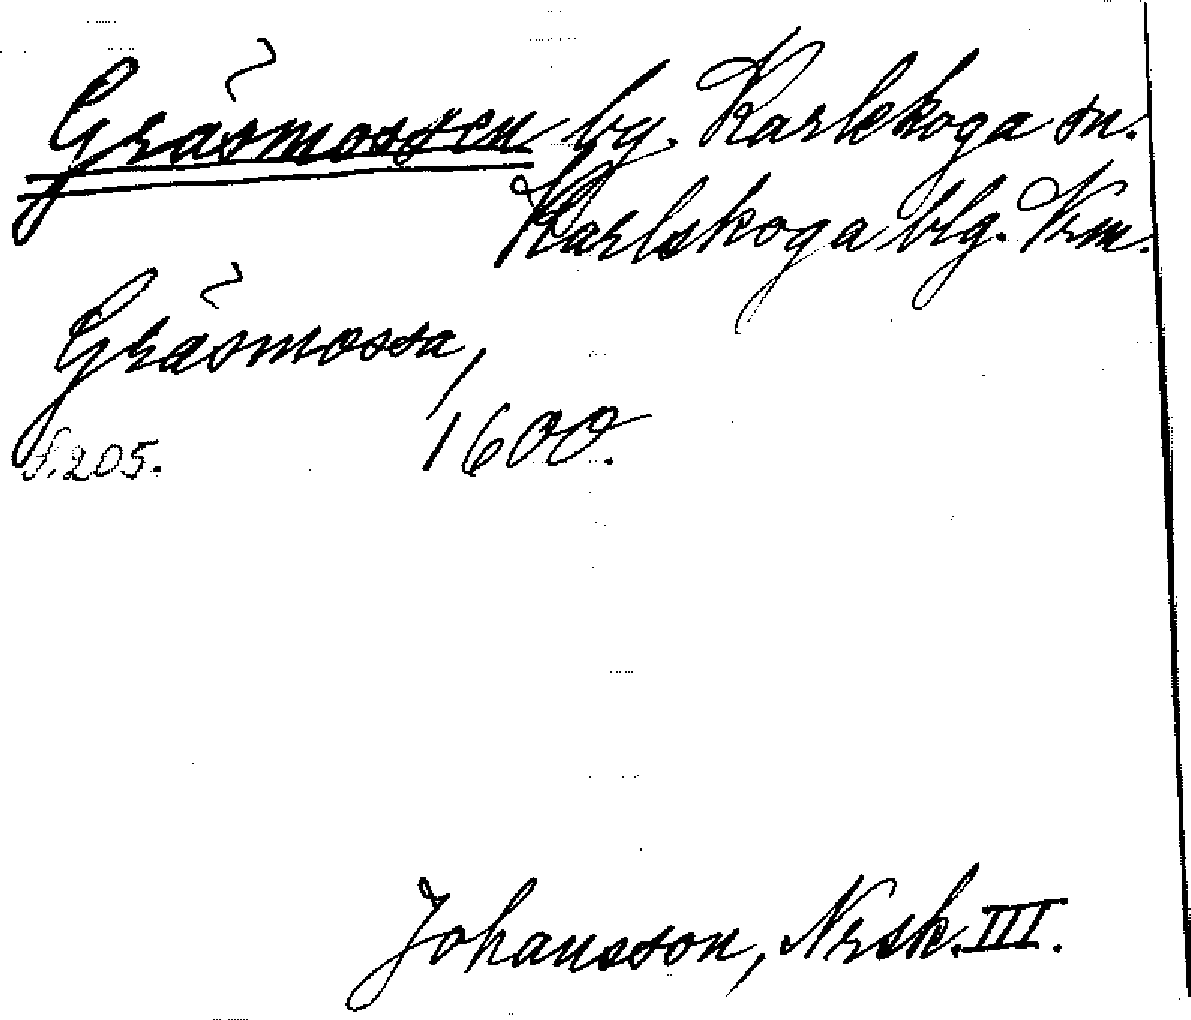 Gräsmossen by. Karlskoga sn.
Karlskoga blg. Krm.
Gräsmossa,
S. 205. 1600.
Johansson, Nrsk. III.